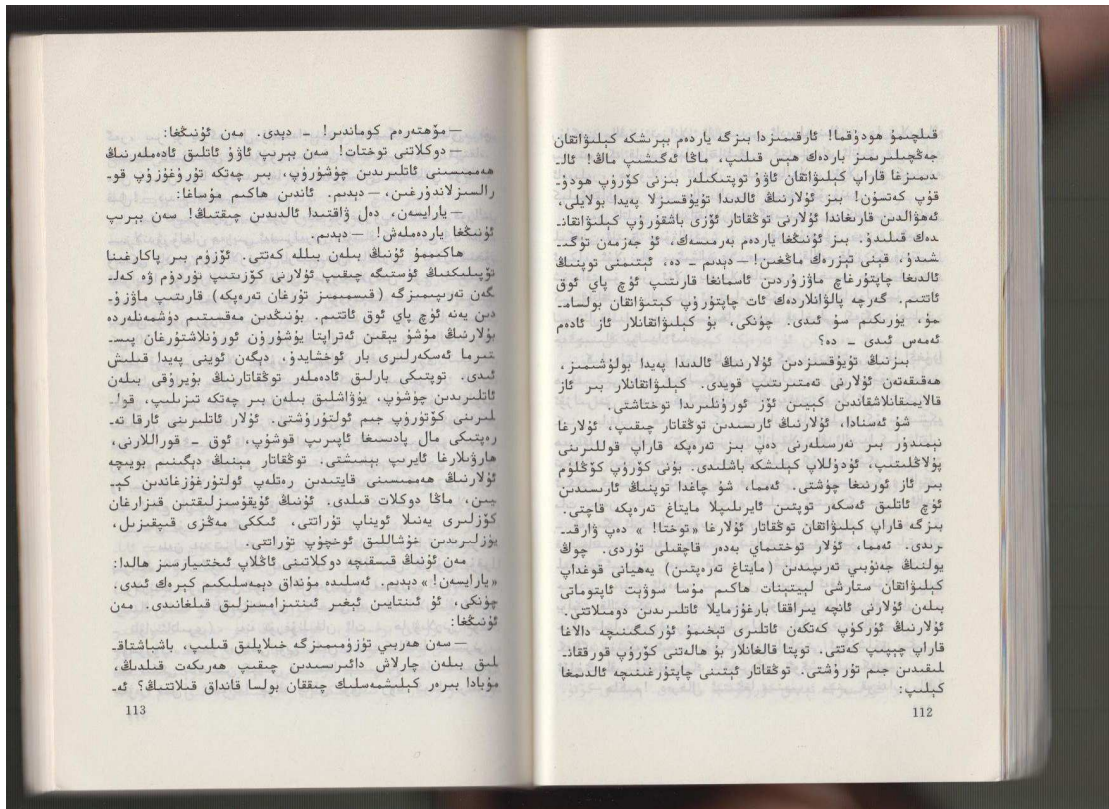 قىلچىمۇ ھودۇقما! ئارقىمىزدا بىزگە ياردەم بېرىشكە كېلىۋاتقان
جەڭچىلىرىمىز باردەك ھېس قىلىپ، ماڭا ئەگىشىپ ماڭ! ئال-
دىمىزغا قاراپ كېلىۋاتقان ئاۋۇ توپتىكىلەر بىزنى كۆرۈپ ھودۇ-
قۇپ كەتسۇن! بىز ئۇلارنىڭ ئالدىدا تۇيۇقسىزلا پەيدا بولايلى،
ئەھۋالدىن قارىغاندا ئۇلارنى توڭقاتار ئۆزى باشقۇرۇپ كېلىۋاتقان-
دەك قىلىدۇ. بىز ئۇنىڭغا ياردەم بەرمىسەك، ئۇ جەزمەن تۈگ-
شىدۇ، قېنى تېزرەك ماڭغىن! — دېدىم - دە، ئېتىمنى توپنىڭ
ئالدىغا چاپتۇرغاچ ماۋزۇردىن ئاسمانغا قارىتىپ ئۈچ پاي ئوق
ئاتتىم. گەرچە پالۋانلاردەك ئات چاپتۇرۇپ كېتىۋاتقان بولسام-
مۇ، يۈرىكىم سۇ ئىدى. چۈنكى، بۇ كېلىۋاتقانلار ئاز ئادەم
ئەمەس ئىدى - دە؟
بىزنىڭ تۇيۇقسىزدىن ئۇلارنىڭ ئالدىدا پەيدا بولۇشىمىز،
ھەقىقەتەن ئۇلارنى تەمتىرىتىپ قويدى. كېلىۋاتقانلار بىر ئاز
قالايمىقانلاشقاندىن كېيىن ئۆز ئورۇنلىرىدا توختاشتى.
شۇ ئەسنادا، ئۇلارنىڭ ئارىسىدىن توڭقاتار چىقىپ، ئۇلارغا
نېمىدۇر بىر نەرسىلەرنى دەپ بىز تەرەپكە قاراپ قوللىرىنى
پۇلاڭلىتىپ، ئۇدۇللاپ كېلىشكە باشلىدى. بۇنى كۆرۈپ كۆڭلۈم
بىر ئاز ئورنىغا چۈشتى. ئەمما، شۇ چاغدا توپنىڭ ئارىسىدىن
ئۈچ ئاتلىق ئەسكەر توپتىن ئايرىلىپلا مايتاغ تەرەپكە قاچتى.
بىزگە قاراپ كېلىۋاتقان توڭقاتار ئۇلارغا «توختا! » دەپ ۋارقى-
رىدى. ئەمما، ئۇلار توختىماي بەدەر قاچقىلى تۇردى. چوڭ
يولنىڭ جەنۇبىي تەرىپىدىن (مايتاغ تەرەپتىن) يەھيانى قوغداپ
كېلىۋاتقان ستارشى لېيتېنات ھاكىم مۇسا سوۋېت ئاپتوماتى
بىلەن ئۇلارنى ئانچە يىراققا بارغۇزمايلا ئاتلىرىدىن دومىلاتتى.
ئۇلارنىڭ ئۈركۈپ كەتكەن ئاتلىرى تېخىمۇ ئۈركىگىنىچە دالاغا
قاراپ چېپىپ كەتتى. توپتا قالغانلار بۇ ھالەتنى كۆرۈپ قورققان-
لىقىدىن جىم تۇرۇشتى. توڭقاتار ئېتىنى چاپتۇرغىنىچە ئالدىمغا
كېلىپ:
112
— مۆھتەرەم كوماندىر! - دېدى. مەن ئۇنىڭغا:
— دوكلاتنى توختات! سەن بېرىپ ئاۋۇ ئاتلىق ئادەملەرنىڭ
ھەممىسىنى ئاتلىرىدىن چۈشۈرۈپ، بىر چەتكە تۇرغۇزۇپ قو-
رالسىزلاندۇرغىن، — دېدىم. ئاندىن ھاكىم مۇساغا:
— يارايسەن، دەل ۋاقتىدا ئالدىدىن چىقتىڭ! سەن بېرىپ
ئۇنىڭغا ياردەملەش! — دېدىم.
ھاكىممۇ ئۇنىڭ بىلەن بىللە كەتتى. ئۆزۈم بىر پاكارغىنا
توپىلىكنىڭ ئۈستىگە چىقىپ ئۇلارنى كۆزىتىپ تۇردۇم ۋە كەل-
گەن تەرىپىمىزگە (قىسمىمىز تۇرغان تەرەپكە) قارىتىپ ماۋزۇ-
دىن يەنە ئۈچ پاي ئوق ئاتتىم. بۇنىڭدىن مەقسىتىم دۈشمەنلەردە
بۇلارنىڭ مۇشۇ يېقىن ئەتراپتا يوشۇرۇن ئورۇنلاشتۇرغان پىس-
تىرما ئەسكەرلىرى بار ئوخشايدۇ، دېگەن ئوينى پەيدا قىلىش
ئىدى. توپتىكى بارلىق ئادەملەر توڭقاتارنىڭ بۇيرۇقى بىلەن
ئاتلىرىدىن چۈشۈپ، يۇۋاشلىق بىلەن بىر چەتكە تىزىلىپ، قول-
لىرىنى كۆتۈرۈپ جىم ئولتۇرۇشتى. ئۇلار ئاتلىرىنى ئارقا تە-
رەپتىكى مال پادىسىغا ئاپىرىپ قوشۇپ، ئوق - قوراللارنى،
ھارۋىلارغا ئايرىپ بېسىشتى. توڭقاتار مېنىڭ دېگىنىم بويىچە
ئۇلارنىڭ ھەممىسىنى قايتىدىن رەتلەپ ئولتۇرغۇزغاندىن كې-
يىن، ماڭا دوكلات قىلدى. ئۇنىڭ ئۇيقۇسىزلىقتىن قىزارغان
كۆزلىرى يەنىلا ئويناپ تۇراتتى، ئىككى مەڭزى قىپقىزىل،
يۈزلىرىدىن خۇشاللىق ئوخچۇپ تۇراتتى.
مەن ئۇنىڭ قىسقىچە دوكلاتىنى ئاڭلاپ ئىختىيارسىز ھالدا:
«يارايسەن! » دېدىم. ئەسلىدە مۇنداق دېمەسلىكىم كېرەك ئىدى.
چۈنكى، ئۇ ئىنتايىن ئېغىر ئىنتىزامسىزلىق قىلغانىدى. مەن
ئۇنىڭغا:
— سەن ھەربىي تۈزۈمىمىزگە خىلاپلىق قىلىپ، باشباشتاق-
لىق بىلەن چارلاش دائىرىسىدىن چىقىپ ھەرىكەت قىلدىڭ،
مۇبادا بىرەر كېلىشمەسلىك چىققان بولسا قانداق قىلاتتىڭ؟ ئە-
113